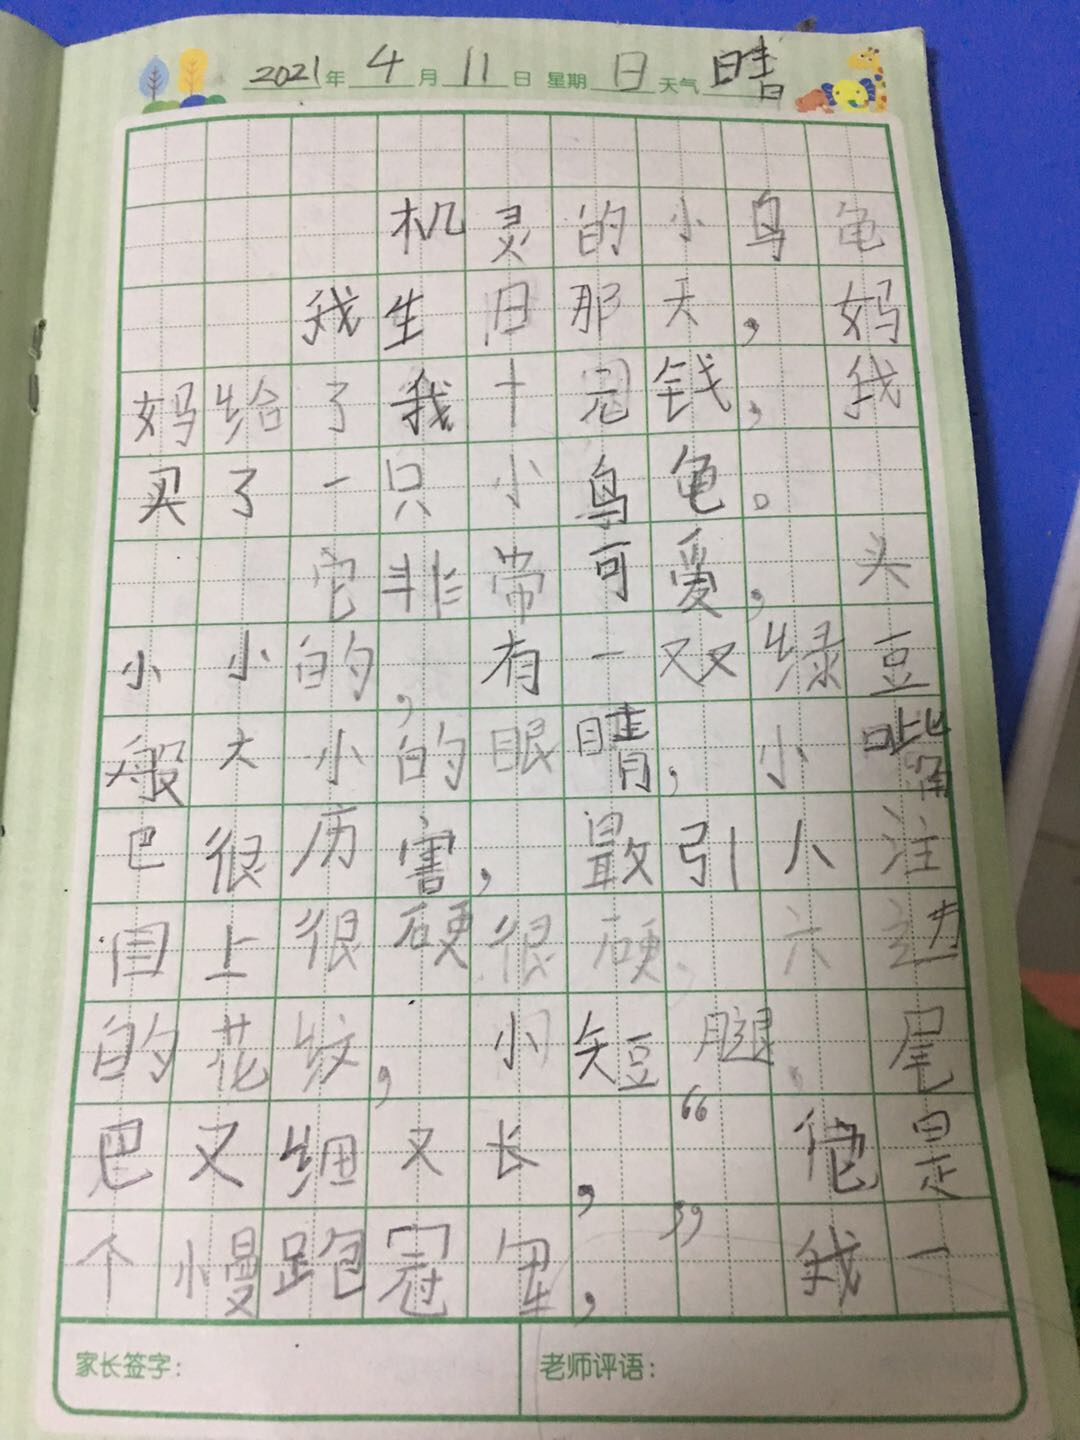 2021年4月11日 星期日 天气晴
机灵的小乌龟
我生日那天，妈
妈给了我十元钱，我
买了一只小乌龟。
它非常可爱，头
小小的，有一双绿豆
般大小的眼睛，小嘴
巴很厉害，最引人注
目上很硬很硬、六边
的花纹，小短腿、尾
巴又细又长，“他是
个慢跑冠军，”我一
家长签字：
老师评语：